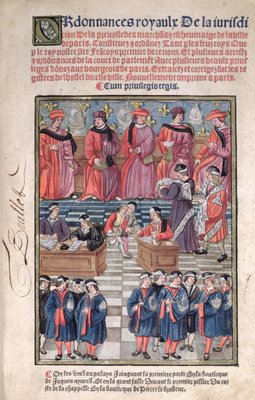 Ordonnances royaulx De la iurisdi
cion De la preuoste des marchans et escheuinage de la ville
de paris. Constituez et ordonez Tant p les feuz roys Que
p le roy nostre sire Frácoys premier de ce nom. Et plusieurs arrestz
et ordónances de la court de parlemét. Auec plusieurs beaux priui
leges dónez aux bourgeois de paris. Extraictz et corrigez sur les re
gistres de lhostel dicelle ville. Nouuellement imprime a paris.
Cum priuilegio regis.
On les vend au palays Joignant la premiere porte En la bouticque
de Jaques nyuerd. Et en la grant salle Deuant le premier pillier Du cu
ste de la chappelle En la bouticque de Pierre le brodeur